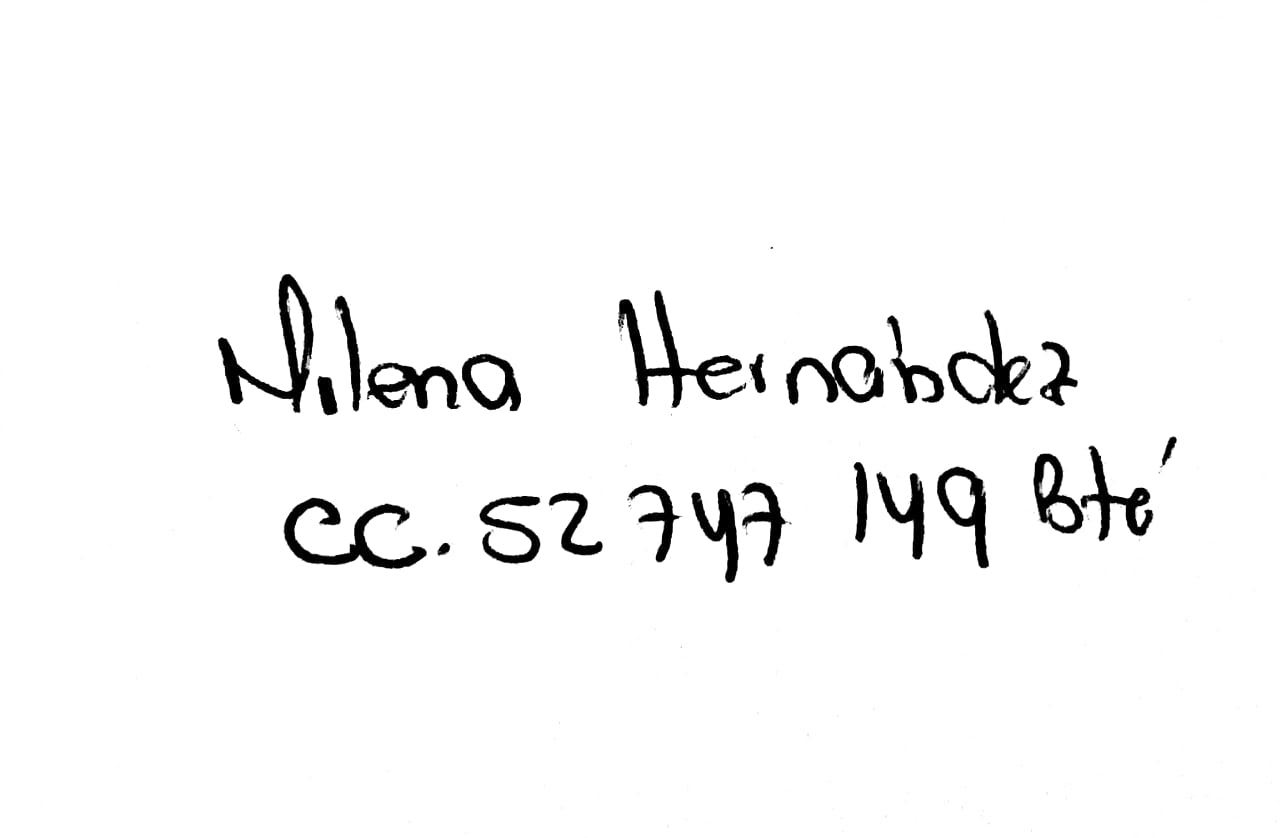 Milena Hernández
CC. 52 747 149 Bté